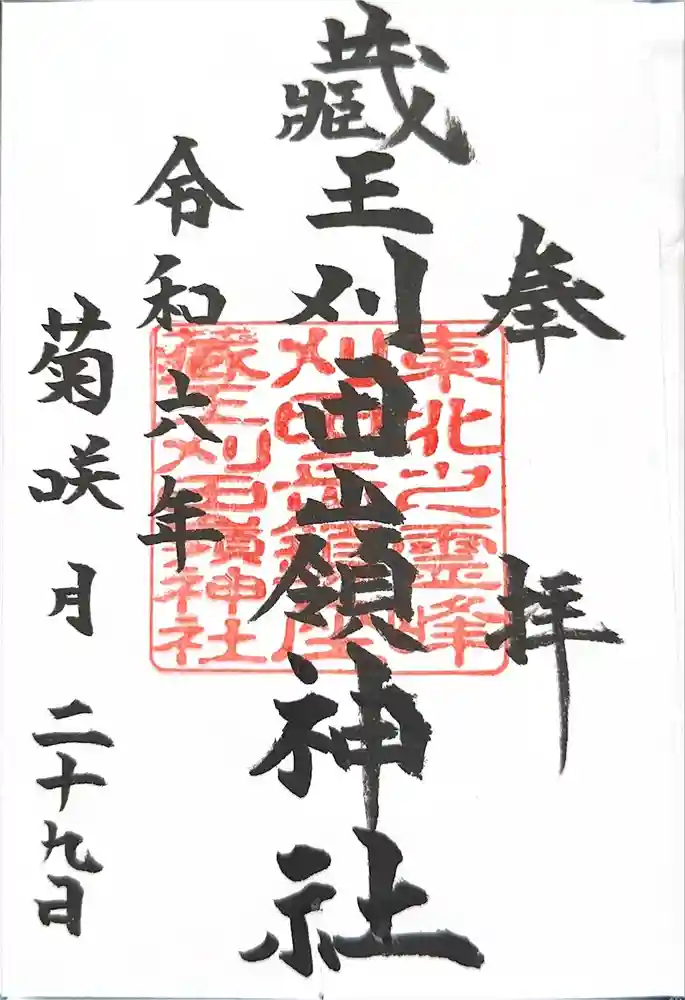 奉拝
蔵王刈田嶺神社
令和六年
菊咲月二十九日
東北之霊峰
刈田岳鎮座
蔵王刈田嶺神社